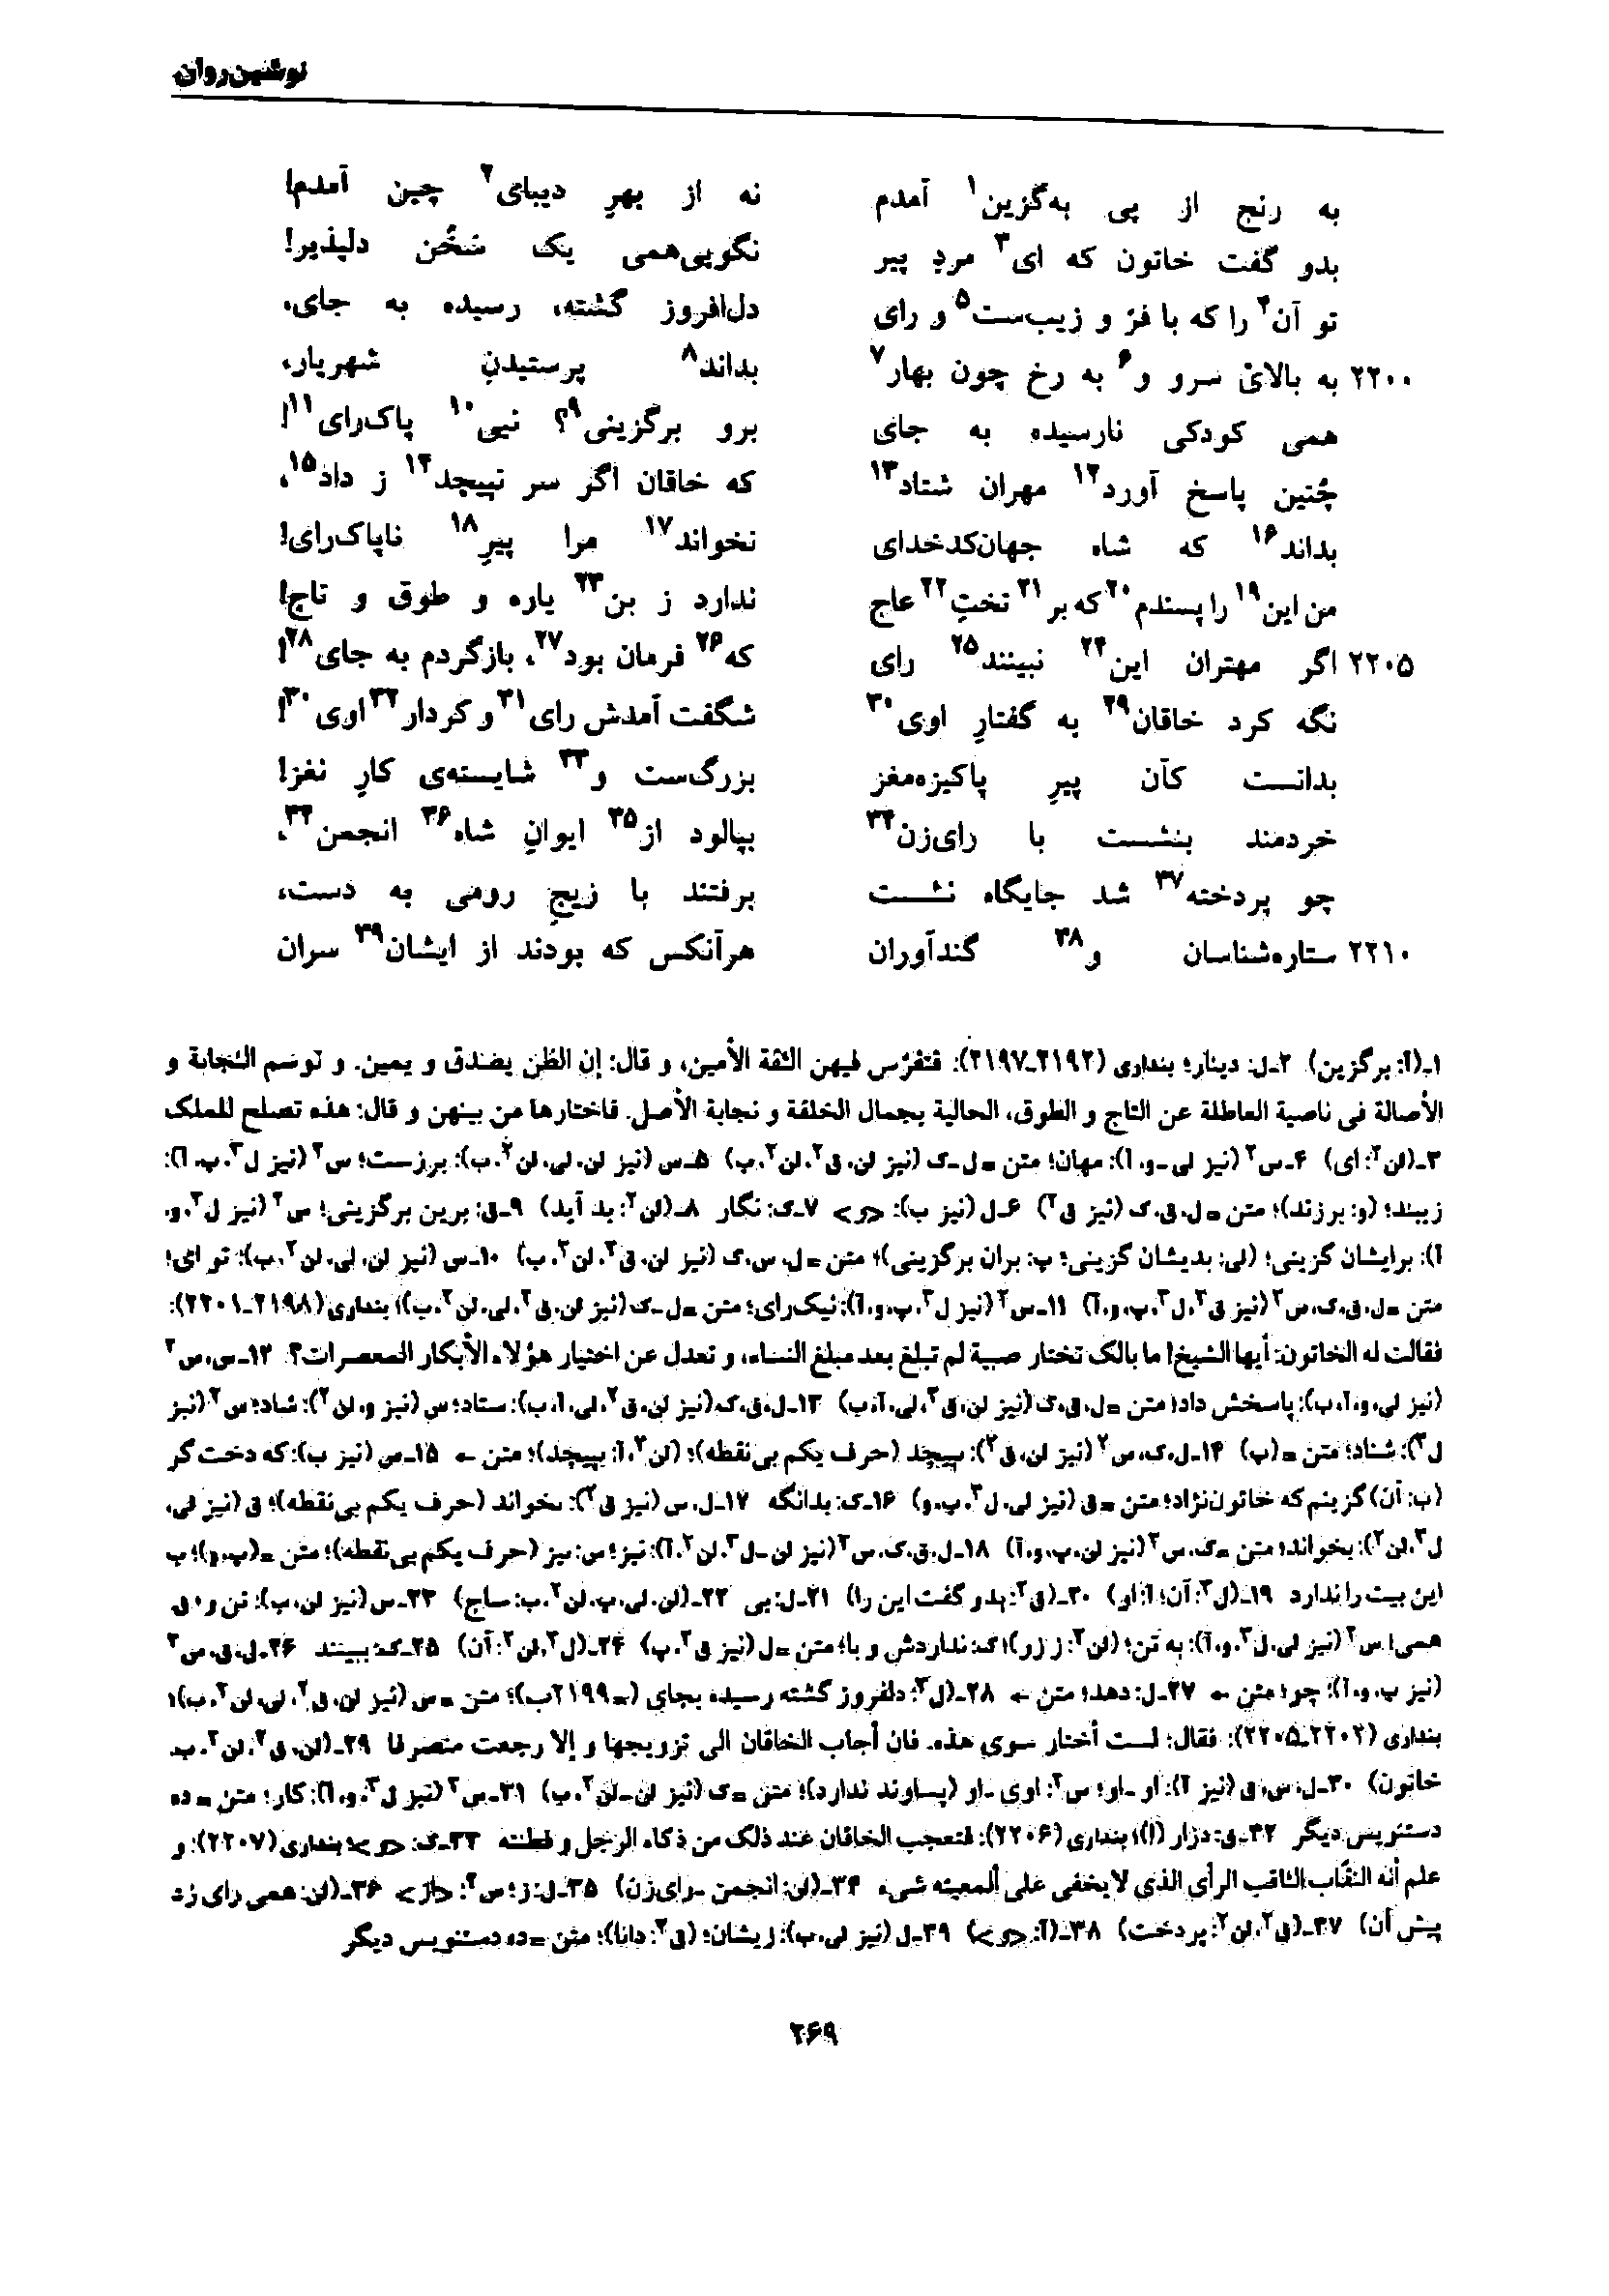 نوشین‌روان
به رنج از پی به‌گزین۱ آمدم نه از بهرِ دیبای۲ چین آمدم!
بدو گفت خاتون که ای۳ مردِ پیر نگویی‌همی یک سَخُن دلپذیر!
تو آن۴ را که با فرّ و زیب‌ست۵ و رای دل‌افروز گشته، رسیده به جای،
۲۲۰۰ به بالایْ سرو و۶ به رخ چون بهار۷ بداند۸ پرستیدنِ شهریار،
همی کودکی نارسیده به جای برو برگزینی۹؟ نیی۱۰ پاک‌رای۱۱!
چُنین پاسخ آورد۱۲ مهران ستاد۱۳ که خاقان اگر سر نپیچد۱۴ ز داد۱۵،
بداند۱۶ که شاه جهان‌کدخدای نخواند۱۷ مرا پیرِ۱۸ ناپاک‌رای!
من این۱۹ را پسندم۲۰ که بر۲۱ تختِ۲۲ عاج ندارد ز بن۲۳ یاره و طوق و تاج!
۲۲۰۵ اگر مهتران این۲۴ نبینند۲۵ رای که۲۶ فرمان بود۲۷، بازگردم به جای۲۸!
نگه کرد خاقان۲۹ به گفتارِ اوی۳۰ شگفت آمدش رای۳۱ و کردار۳۲ اوی۳۰!
بدانست کآن پیرِ پاکیزه‌مغز بزرگ‌ست و۳۳ شایسته‌ی کارِ نغز!
خردمند بنشست با رای‌زن۳۴ بپالود از۳۵ ایوانِ شاه۳۶ انجمن۳۴،
چو پردخته۳۷ شد جایگاه نشست برفتند با زیجِ رومی به دست،
۲۲۱۰ ستاره‌شناسان و۳۸ گندآوران هرآنکس که بودند از ایشان۳۹ سران
۱ـ(آ: برگزین) ۲ـل: دینار؛ بنداری (۲۱۹۲ـ۲۱۹۷): فتفرّس فیهن الثقة الأمین، و قال: إن الظن یصدق و یمین. و توسّم النّجابة و
الأصالة فی ناصیة العاطلة عن التاج و الطوق، الحالیة بجمال الخلقة و نجابة الأصل. فاختارها من بینهن و قال: هذه تصلح للملک
۳ـ(لن۲: ای) ۴ـس۲ (نیز لی ـو، آ): مهان؛ متن = ل ـک (نیز لن، ق۲، لن۲، ب) ۵ـس (نیز لن، لی، لن۲، ب): برزست؛ س۲ (نیز ل۳، پ، آ):
زیبند؛ (و: برزند)؛ متن = ل، ق، ک (نیز ق۲) ۶ـل (نیز ب): <و> ۷ـک: نگار ۸ـ(لن۲: بد آید) ۹ـق: برین برگزینی؛ س۲ (نیز ل۳، و،
آ): برایشان گزینی؛ (لی: بدیشان گزینی؛ پ: بران برگزینی)؛ متن = ل، س، ک (نیز لن، ق۲، لن۲، ب) ۱۰ـس (نیز لن، لی، لن۲، ب): تو ای؛
متن = ل، ق، ک، س۲ (نیز ق۲، ل۳، پ، و، آ) ۱۱ـس۲ (نیز ل۳، پ، و، آ): نیک‌رای؛ متن = ل ـک (نیز لن، ق۲، لی، لن۲، ب)؛ بنداری (۲۱۹۸ـ۲۲۰۱):
فقالت له الخاتون: أیها الشیخ! ما بالک تختار صبیة لم تبلغ بعد مبلغ النساء، و تعدل عن اختیار هؤلاء الأبکار المعصرات؟ ۱۲ـس، س۲
(نیز لی، و، آ، ب): پاسخش داد؛ متن = ل، ق، ک (نیز لن، ق۲، لی، آ، ب) ۱۳ـل، ق، ک (نیز لن، ق۲، لی، آ، ب): ستاد؛ س (نیز و، لن۲): شاد؛ س۲ (نیز
ل۳): شناد؛ متن = (پ) ۱۴ـل، ک، س۲ (نیز لن، ق۲): بپیچد (حرف یکم بی‌نقطه)؛ (لن۲، آ: بپیچد)؛ متن ← ۱۵ـس (نیز ب): که دخت گر
(ب: آن) گزینم که خاتون‌نژاد؛ متن = ق (نیز لی، ل۳، پ، و) ۱۶ـک: بدانگه ۱۷ـل، س (نیز ق۲): بخواند (حرف یکم بی‌نقطه)؛ ق (نیز لی،
ل۳، لن۲): بخواند؛ متن = ک، س۲ (نیز لن، پ، و، آ) ۱۸ـل، ق، ک، س۲ (نیز لن ـل۳، لن۲، آ): نیز؛ س: بیز (حرف یکم بی‌نقطه)؛ متن = (پ، و)؛ ب
این بیت را ندارد ۱۹ـ(ل۳: آن؛ آ: او) ۲۰ـ(ق۲: بدو گفت این را) ۲۱ـل: بی ۲۲ـ(لن، لی، پ، لن۲، ب: ساج) ۲۳ـس (نیز لن، ب): تن و؛ ق:
همی؛ س۲ (نیز لی، ل۳، و، آ): به تن؛ (لن۲: ز زر)؛ ک: نداردش و با؛ متن = ل (نیز ق۲، پ) ۲۴ـ(ل۳، لن۲: آن) ۲۵ـک: ببینند ۲۶ـل، ق، س۲
(نیز پ، و، آ): چو؛ متن ← ۲۷ـل: دهد؛ متن ← ۲۸ـ(ل۳: دلفروز گشته رسیده بجای (=۲۱۹۹ب)؛ متن = س (نیز لن، ق۲، لی، لن۲، ب)؛
بنداری (۲۲۰۲ـ۲۲۰۵): فقال: لست أختار سوی هذه. فان أجاب الخاقان الی تزویجها و إلا رجعت منصرفا ۲۹ـ(لن، ق۲، لن۲، ب:
خاتون) ۳۰ـل، س، ق (نیز آ): او ـاو؛ س۲: اوی ـاو (پساوند ندارد)؛ متن = ک (نیز لن ـلن۲، ب) ۳۱ـس۲ (نیز ل۳، و، آ): کار؛ متن = ده
دستنویس دیگر ۳۲ـق: دزار (!)؛ بنداری (۲۲۰۶): فتعجب الخاقان عند ذلک من ذکاء الرجل و فطنته ۳۳ـک: <و>؛ بنداری (۲۲۰۷): و
علم أنه النقّاب الثاقب الرأی الذی لایخفی علی ألمعیته شیء ۳۴ـ(لن: انجمن ـرای‌زن) ۳۵ـل: ز؛ س۲: <از> ۳۶ـ(لن: همی رای زد
پیش آن) ۳۷ـ(ق۲، لن۲: پردخت) ۳۸ـ(آ: <و>) ۳۹ـل (نیز لی، ب): زیشان؛ (ق۲: دانا)؛ متن = ده دستنویس دیگر
۲۶۹